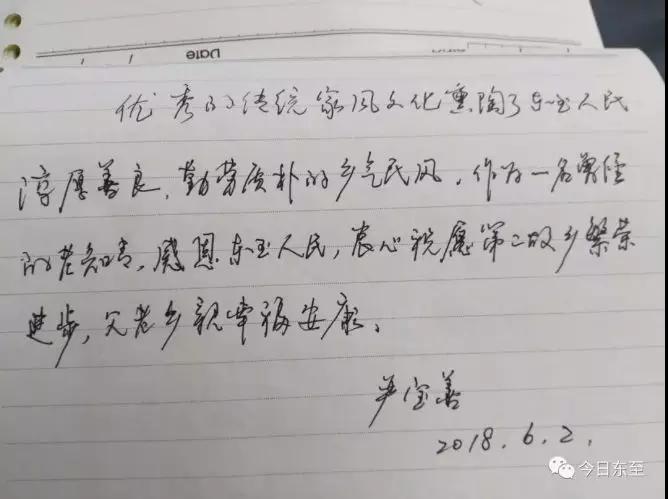 Date
优秀的传统家风文化熏陶了东至人民
淳厚善良,勤劳质朴的乡气民风,作为一名曾经
的老知青,感恩东至人民,衷心祝愿第二故乡繁荣
进步,父老乡親幸福安康。
严宝善
2018.6.2.
今日东至